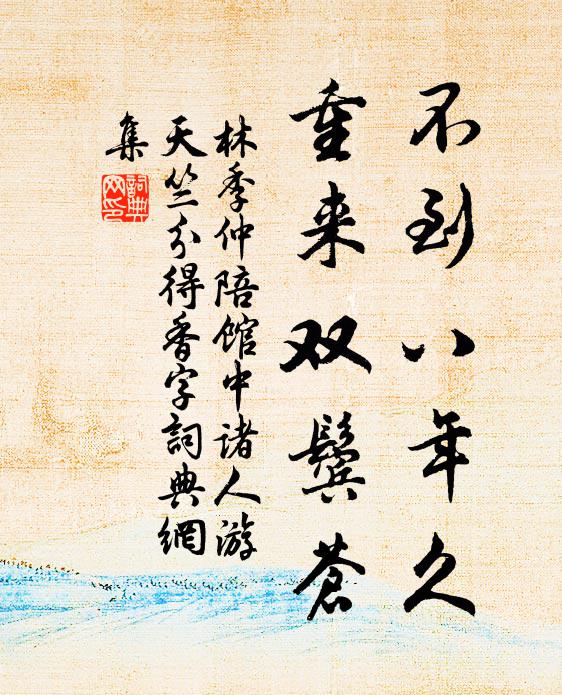 不到八年久
重来双鬓苍
林季仲陪馆中诸人游
天竺分得香字詞典網
集
詞典
网印